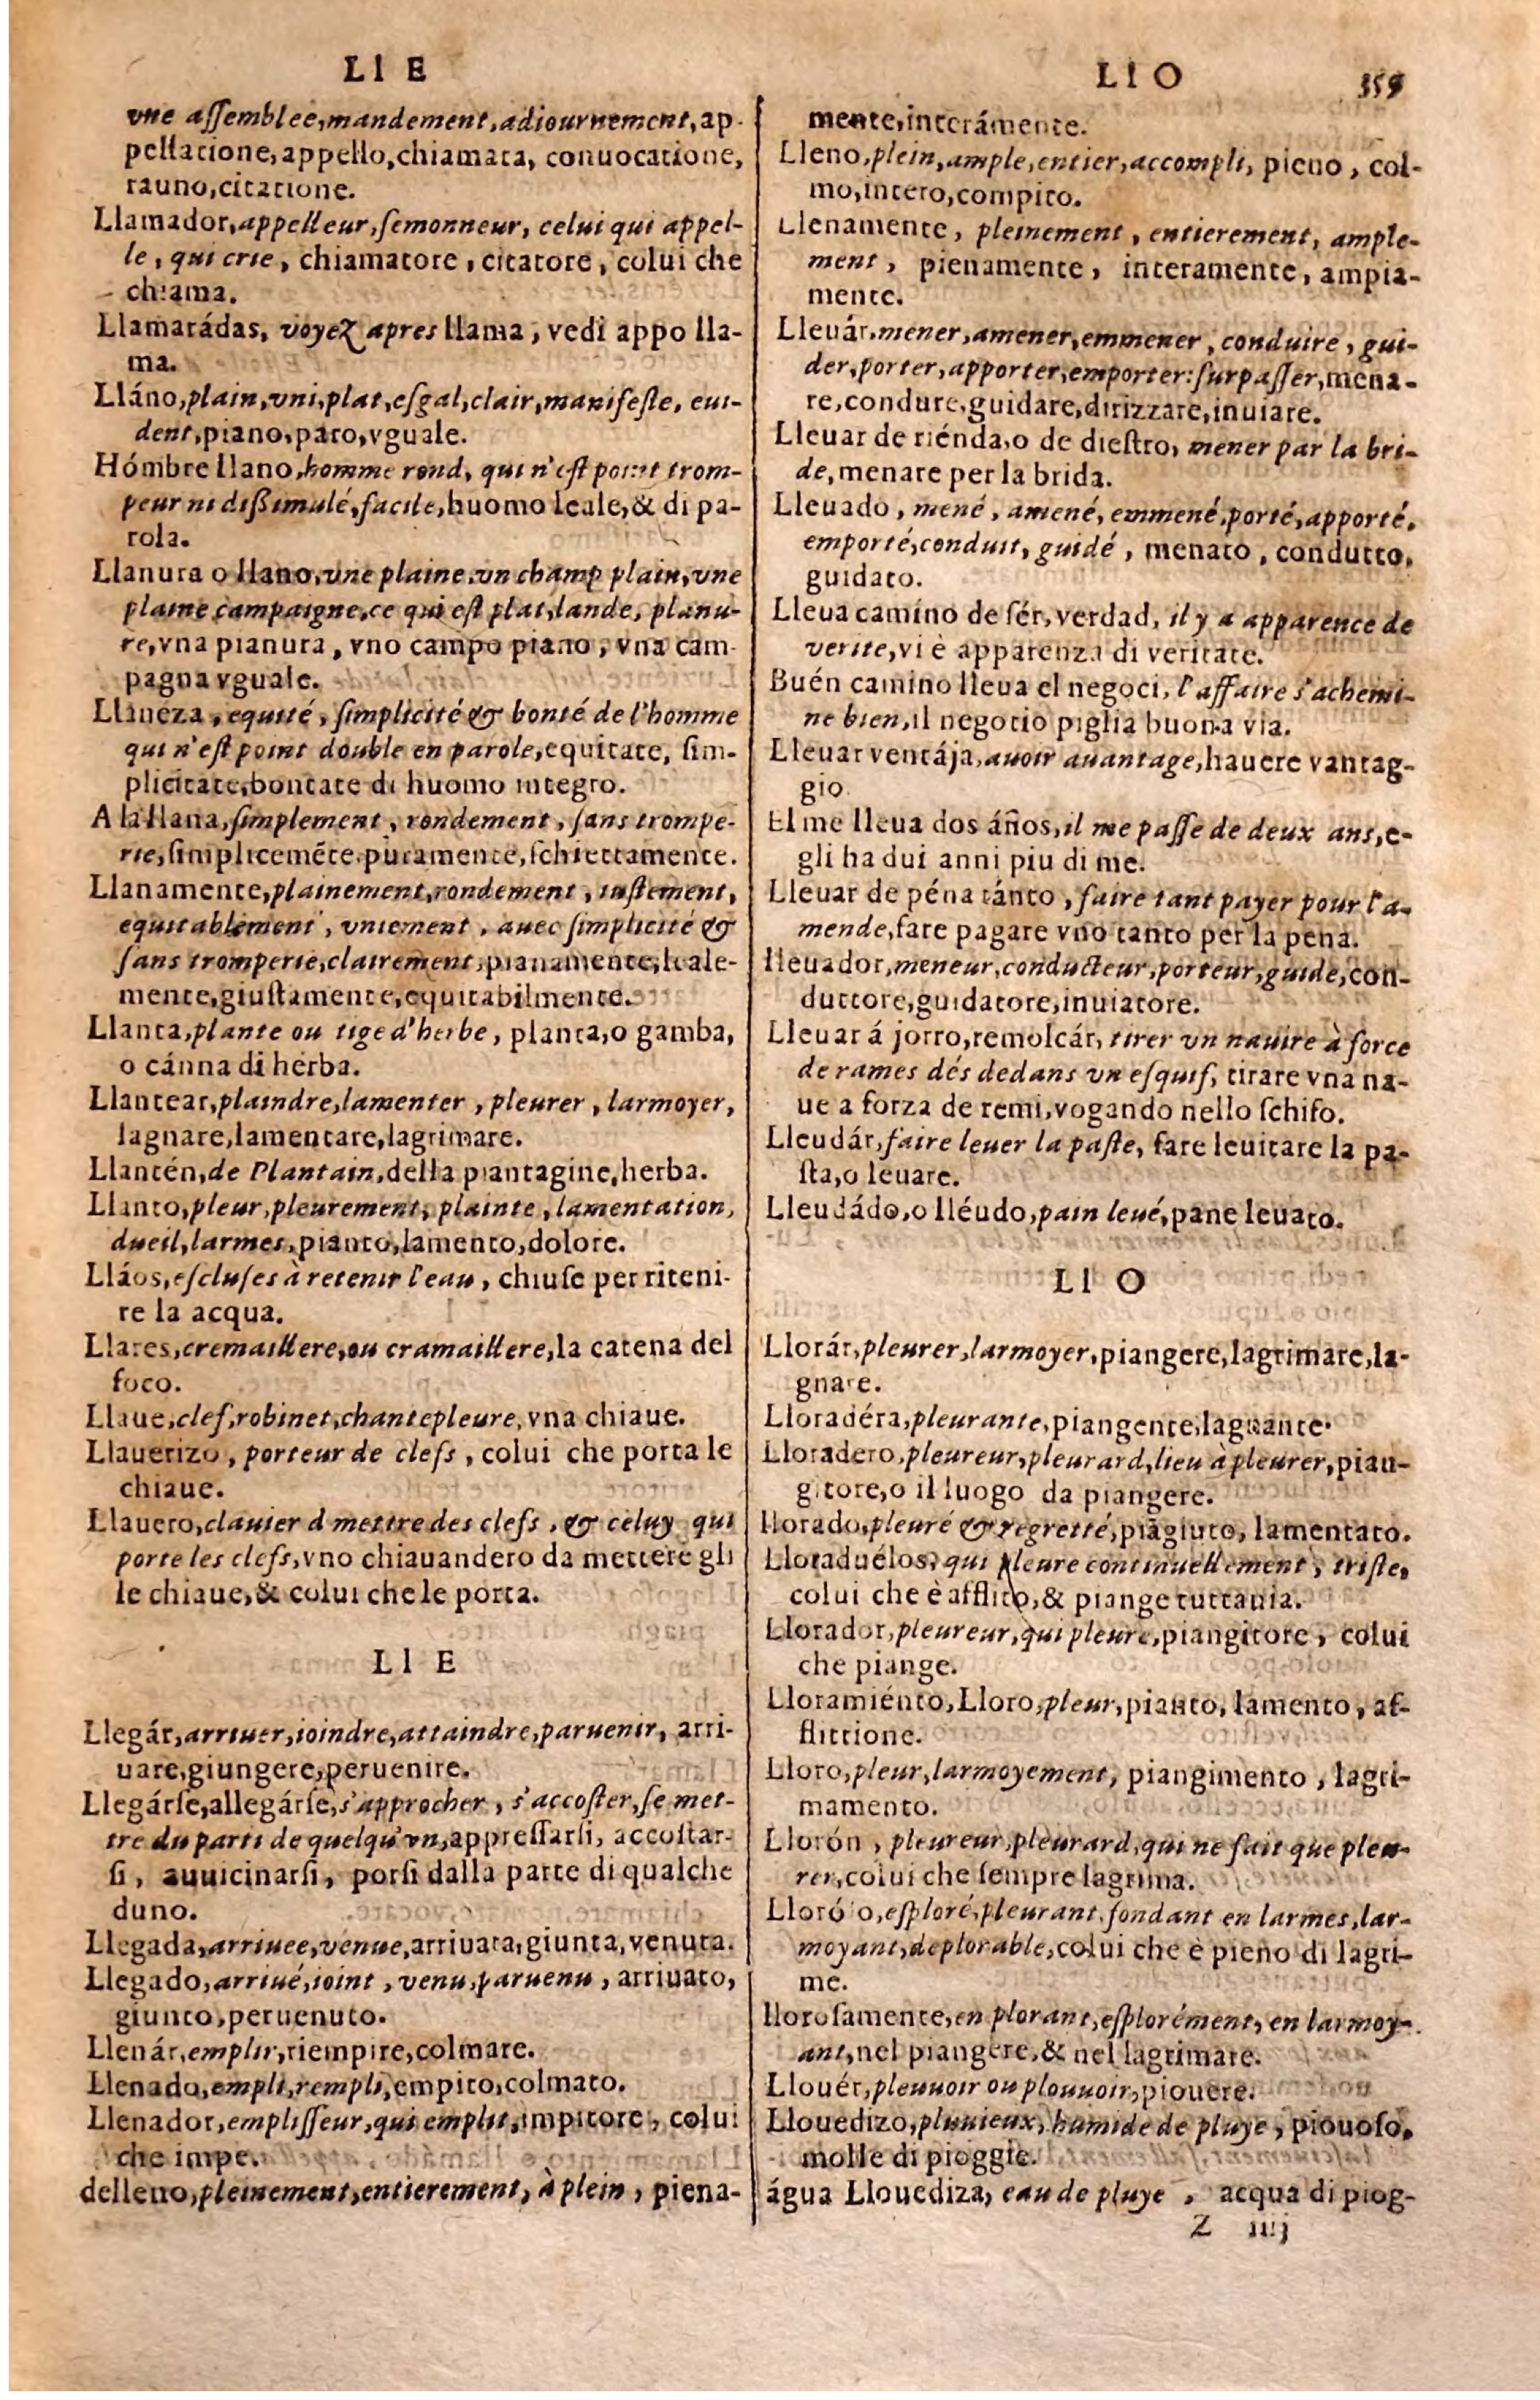 Ll E
vne aſſemblee,mandement,adiournement,ap-
pellatione,appello,chiamata, conuocatione,
rauno,citatione.
Llamador,appelleur,ſemonneur, celui qui appel-
le, qui crie, chiamatore, citatore, colui che
chiama.
Llamatádas, voyez apres llama, vedi appo lla-
ma.
Lláno,plain,vni,plat,eſgal,clair,manifeſte, eui-
dent,piano,paro,vguale.
Hómbre llano,homme rond, qui n'eſt point trom-
peur ni dißimulé,facile,huomo leale,& di pa-
rola.
Llanura o llano,vne plaine,vn champ plain,vne
plaine campaigne,ce qui eſt plat,lande, planu-
re,vna pianura, vno campo piano, vna cam-
pagna vguale.
Llaneza, equité, ſimplicité & bonté de l'homme
qui n'eſt point double en parole,equitate, ſim-
plicitate,bontate di huomo integro.
A la llana,ſimplement, rondement, ſans trompe-
rie,ſimplicemēte.puramente,ſchiettamente.
Llanamente,plainement,rondement, iuſtement,
equitablement, vniement, auec ſimplicité &
ſans tromperie,clairement,pianamente,leale-
mente,giuſtamente,equitabilmente.
Llanta,plante ou tige d'herbe, planta,o gamba,
o cánna di herba.
Llantear,plaindre,lamenter, pleurer, larmoyer,
lagnare,lamentare,lagrimare.
Llantén,de Plantain,della piantagine,herba.
Llanto,pleur,pleurement, plainte, lamentation,
dueil,larmes,pianto,lamento,dolore.
Lláos,eſcluſes à retenir l'eau, chiuſe per riteni-
re la acqua.
Llares,cremaillere,ou cramaillere,la catena del
foco.
Llaue,clef,robinet,chantepleure,vna chiaue.
Llauerizo, porteur de clefs, colui che porta le
chiaue.
Llauero,clauier d mettre des clefs, & celuy qui
porte les clefs,vno chiauandero da mettere gli
le chiaue,& colui che le porta.
Ll E
Llegár,arriuer,ioindre,attaindre,paruenir, arri-
uare,giungere,peruenire.
Llegárſe,allegárſe,s'approcher, s'accoſter,ſe met-
tre du parti de quelqu'vn,appreſſarſi, accoſtar-
ſi, auuicinarſi, porſi dalla parte di qualche
duno.
Llegada,arriuee,venue,arriuata,giunta,venuta.
Llegado,arriué,ioint, venu,paruenu, arriuato,
giunto,peruenuto.
Llenár,emplir,riempire,colmare.
Llenado,empli,rempli,empito,colmato.
Llenador,empliſſeur,qui emplit,impitore, colui
che impe.
delleno,pleinement,entierement, à plein, piena-
Ll O 359
mente,interámente.
Lleno,plein,ample,entier,accompli, pieno, col-
mo,intero,compito.
Llenamente, pleinement, entierement, ample-
ment, pienamente, interamente, ampia-
mente.
Lleuár,mener,amener,emmener, conduire, gui-
der,porter,apporter,emporter:ſurpaſſer,mena-
re,condure,guidare,dirizzare,inuiare.
Lleuar de riénda,o de dieſtro, mener par la bri-
de,menare per la brida.
Lleuado, mené, amené, emmené,porté,apporté,
emporté,conduit, guidé, menato, condutto,
guidato.
Lleua camino de ſér,verdad, il y a apparence de
verite,vi è apparenza di veritate.
Buén camino lleua el negoci, l'affaire s'achemi-
ne bien,il negotio piglia buona via.
Lleuar ventája,auoir auantage,hauere vantag-
gio
El me lleua dos áños,il me paſſe de deux ans,e-
gli ha dui anni piu di me.
Lleuar de péna tánto, faire tant payer pour l'a-
mende,fare pagare vno tanto per la pena.
lleuador,meneur,conducteur,porteur,guide,con-
duttore,guidatore,inuiatore.
Lleuar á jorro,remolcár, tirer vn nauire à force
de rames dés dedans vn eſquif, tirare vna na-
ue a forza de remi,vogando nello ſchifo.
Lleudár,faire leuer la paſte, fare leuitare la pa-
ſta,o leuare.
Lleudádo,o lléudo,pain leué,pane leuato.
Ll O
Llorár,pleurer,larmoyer,piangere,lagrimare,la-
gnare.
Lloradéra,pleurante,piangente,lagnante.
Lloradero,pleureur,pleurard,lieu à pleurer,pian-
gitore,o il luogo da piangere.
llorado,pleuré & regretté,piāgiuto, lamentato.
Lloraduélos, qui pleure continuellement, triſte,
colui che è afflito,& piange tuttauia.
Llorador,pleureur,qui pleure,piangitore, colui
che piange.
Lloramiénto,Lloro,pleur,pianto, lamento, af-
flittione.
Lloro,pleur,larmoyement, piangimento, lagri-
mamento.
Llorón, pleureur,pleurard,qui ne fait que pleu-
rer,colui che ſempre lagrima.
Lloróſo,eſploré,pleurant,fondant en larmes,lar-
moyant,deplorable,colui che è pieno di lagri-
me.
lloroſamente,en plorant,eſplorément, en larmoy-
ant,nel piangere,& nel lagrimare.
Llouér,pleuuoir ou plouuoir,piouere.
Llouedizo,pluuieux,humide de pluye, piouoſo,
molle di pioggie.
água Llouediza, eau de pluye, acqua di piog-
Z iiij